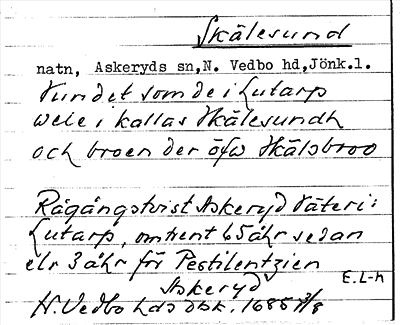 Skälesund
natn, Askeryds sn, N. Vedbo hd, Jönk.l.
Sundet som de i Lutarp
wele i kallas Skälesundh
och broen der öfw Skälsbroo
Rågångstvist Askeryd Säteri:
Lutarp, omtrent 65 åhr sedan
elr 3 åhr för Pestilentzien
Askeryd
E.L-h
N. Vedbo hds dbk. 1685 3/8